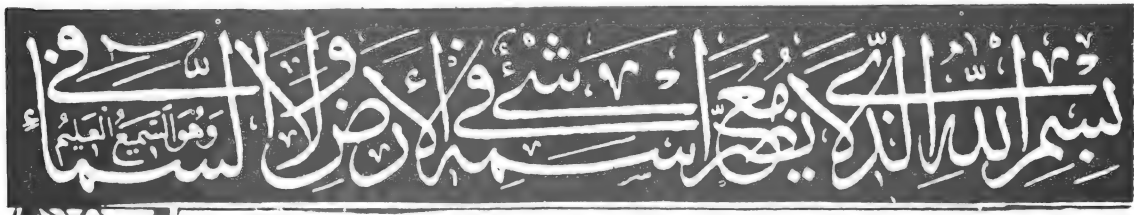 بِسْمِ اللَّهِ الَّذِي لَا يَضُرُّ مَعَ اسْمِهِ شَيْءٌ فِي الْأَرْضِ وَلَا فِي السَّمَاءِ وَهُوَ السَّمِيعُ الْعَلِيمُ